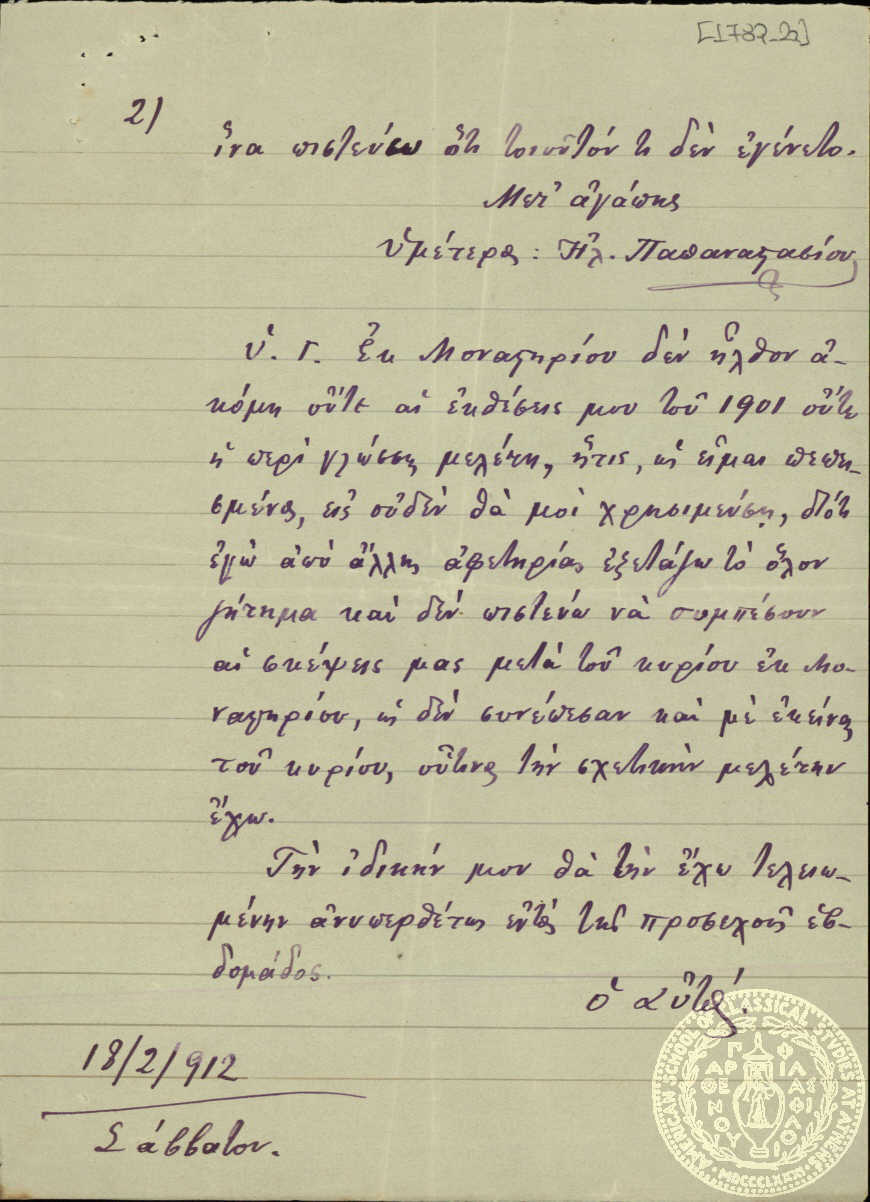 [1782_2]
2)
ἵνα πιστεύσω ὅτι τοιοῦτόν τι δὲν ἐγένετο.
Μετ' ἀγάπης
Ὑμέτερος: Ἠλ. Παπαναστασίου
Ὑ. Γ. Ἐκ Μοναστηρίου δὲν ἦλθον ἀ-
κόμη οὔτε αἱ ἐκθέσεις μου τοῦ 1901 οὔτε
ἡ περὶ γλώσσης μελέτη, ἥτις, ὡς εἶμαι πεπει-
σμένος, εἰς οὐδὲν θὰ μοὶ χρησιμεύσῃ, διότι
ἐγὼ ἀπὸ ἄλλης ἀφετηρίας ἐξετάζω τὸ ὅλον
ζήτημα καὶ δὲν πιστεύω νὰ συμπέσουν
αἱ σκέψεις μας μετὰ τοῦ κυρίου ἐκ Μο-
ναστηρίου, ὡς δὲν συνέπεσαν καὶ μὲ ἐκείνας
τοῦ κυρίου, οὕτινος τὴν σχετικὴν μελέτην
ἔχω.
Τὴν ἰδικήν μου θὰ τὴν ἔχω τελειω-
μένην ἀνυπερθέτως ἐντὸς τῆς προσεχοῦς ἑβ-
δομάδος.
Ὁ αὐτός.
18/2/912
Σάββατον.
AMERICAN SCHOOL OF CLASSICAL STUDIES AT ATHENS
ΠΑΡΘΕΝΟΥ ΦΙΛΑΣ ΦΙΛΟΙ
MDCCCLXXXI